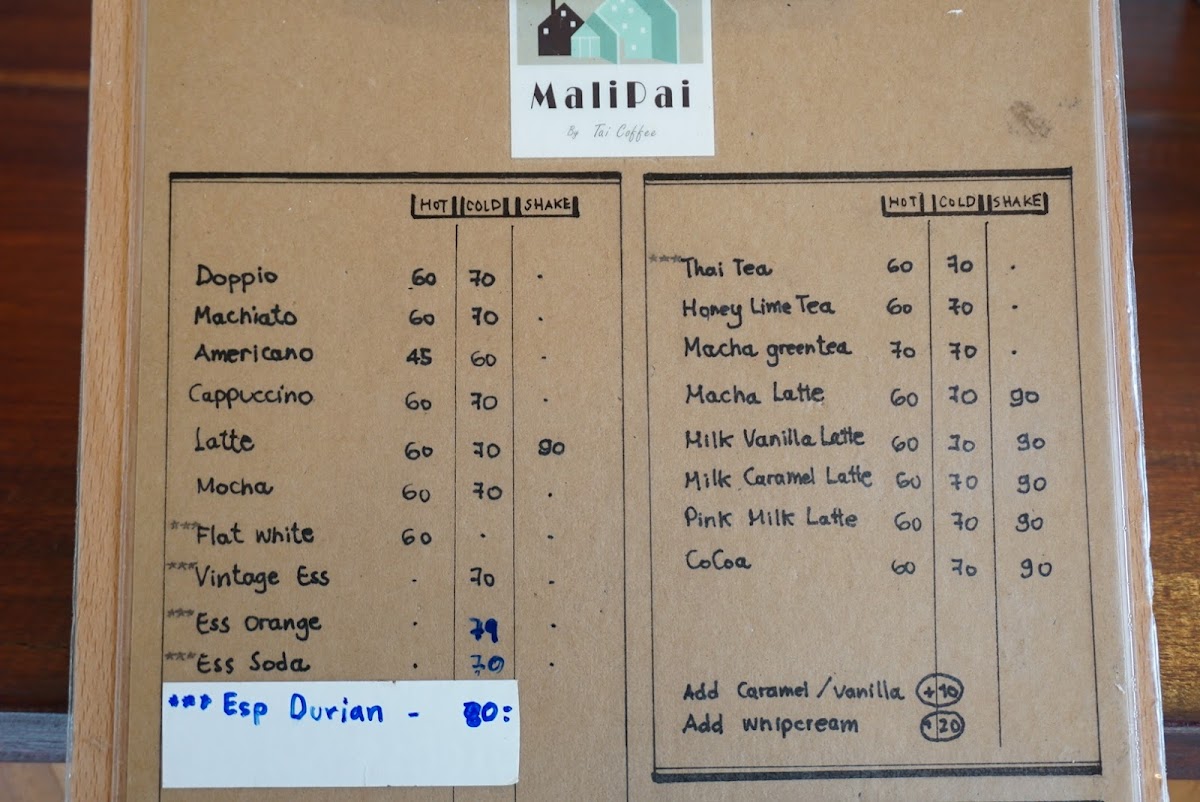 MaliPai
By Tai Coffee
HOT COLD SHAKE
Doppio 60 70 .
Machiato 60 70 .
Americano 45 60 -
Cappuccino 60 70 .
Latte 60 70 90
Mocha 60 70 .
***Flat white 60 . .
***Vintage Ess - 70 -
***Ess orange . 79 .
***Ess Soda . 70 .
*** Esp Durian - 80:
HOT COLD SHAKE
***Thai Tea 60 70 .
Honey Lime Tea 60 70 .
Macha greentea 70 70 .
Macha Latte 60 70 90
Milk Vanilla Latte 60 70 90
Milk Caramel Latte 60 70 90
Pink Milk Latte 60 70 90
CoCoa 60 70 90
Add Caramel/vanilla +10
Add whipcream +20